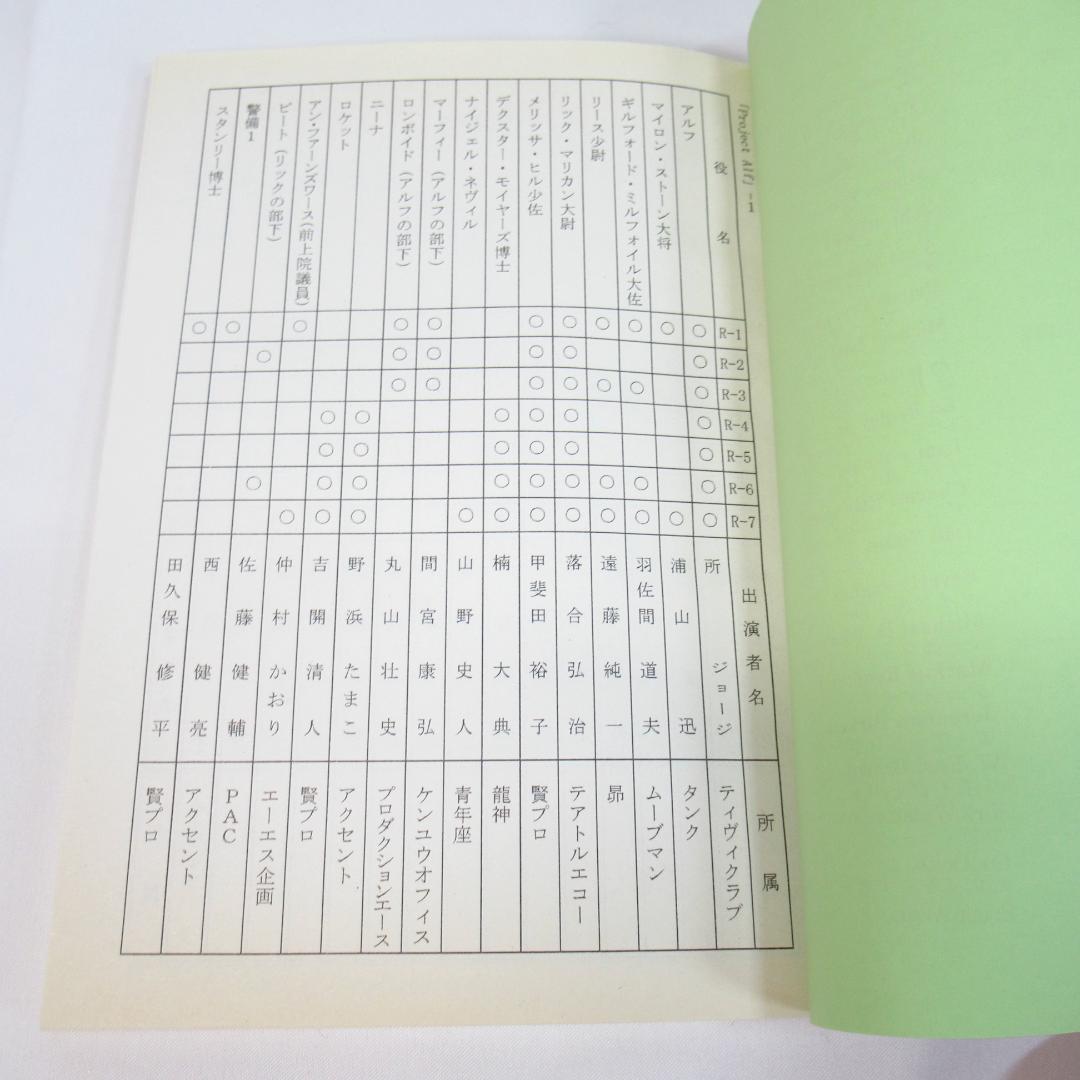 「Project Alf」-1
役名 R-1 R-2 R-3 R-4 R-5 R-6 R-7 出演者名 所属
アルフ ○ ○ ○ ○ ○ ○ ○ 所 ジョージ ティヴィクラブ
マイロン・ストーン大将 ○ ○ 浦山 迅 タンク
ギルフォード・ミルフォイル大佐 ○ ○ ○ ○ 羽佐間 道夫 ムーブマン
リース少尉 ○ ○ ○ ○ 遠藤 純一 昴
リック・マリカン大尉 ○ ○ ○ ○ ○ ○ ○ 落合 弘治 テアトルエコー
メリッサ・ヒル少佐 ○ ○ ○ ○ ○ ○ ○ 甲斐田 裕子 賢プロ
デクスター・モイヤーズ博士 ○ ○ ○ ○ 楠 大典 龍神
ナイジェル・ネヴィル ○ 山野 史人 青年座
マーフィー(アルフの部下) ○ ○ ○ 間宮 康弘 ケンユウオフィス
ロンボイド(アルフの部下) ○ ○ ○ 丸山 壮史 プロダクションエース
ニーナ ○ ○ ○ ○ 野浜 たまこ アクセント
ロケット ○ ○ ○ ○ 吉開 清人 賢プロ
アン・ファーンズワース(前上院議員) ○ ○ 仲村 かおり エーエス企画
ピート(リックの部下) ○ ○ 佐藤 健輔 PAC
警備1 ○ 西 健亮 アクセント
スタンリー博士 ○ 田久保 修平 賢プロ